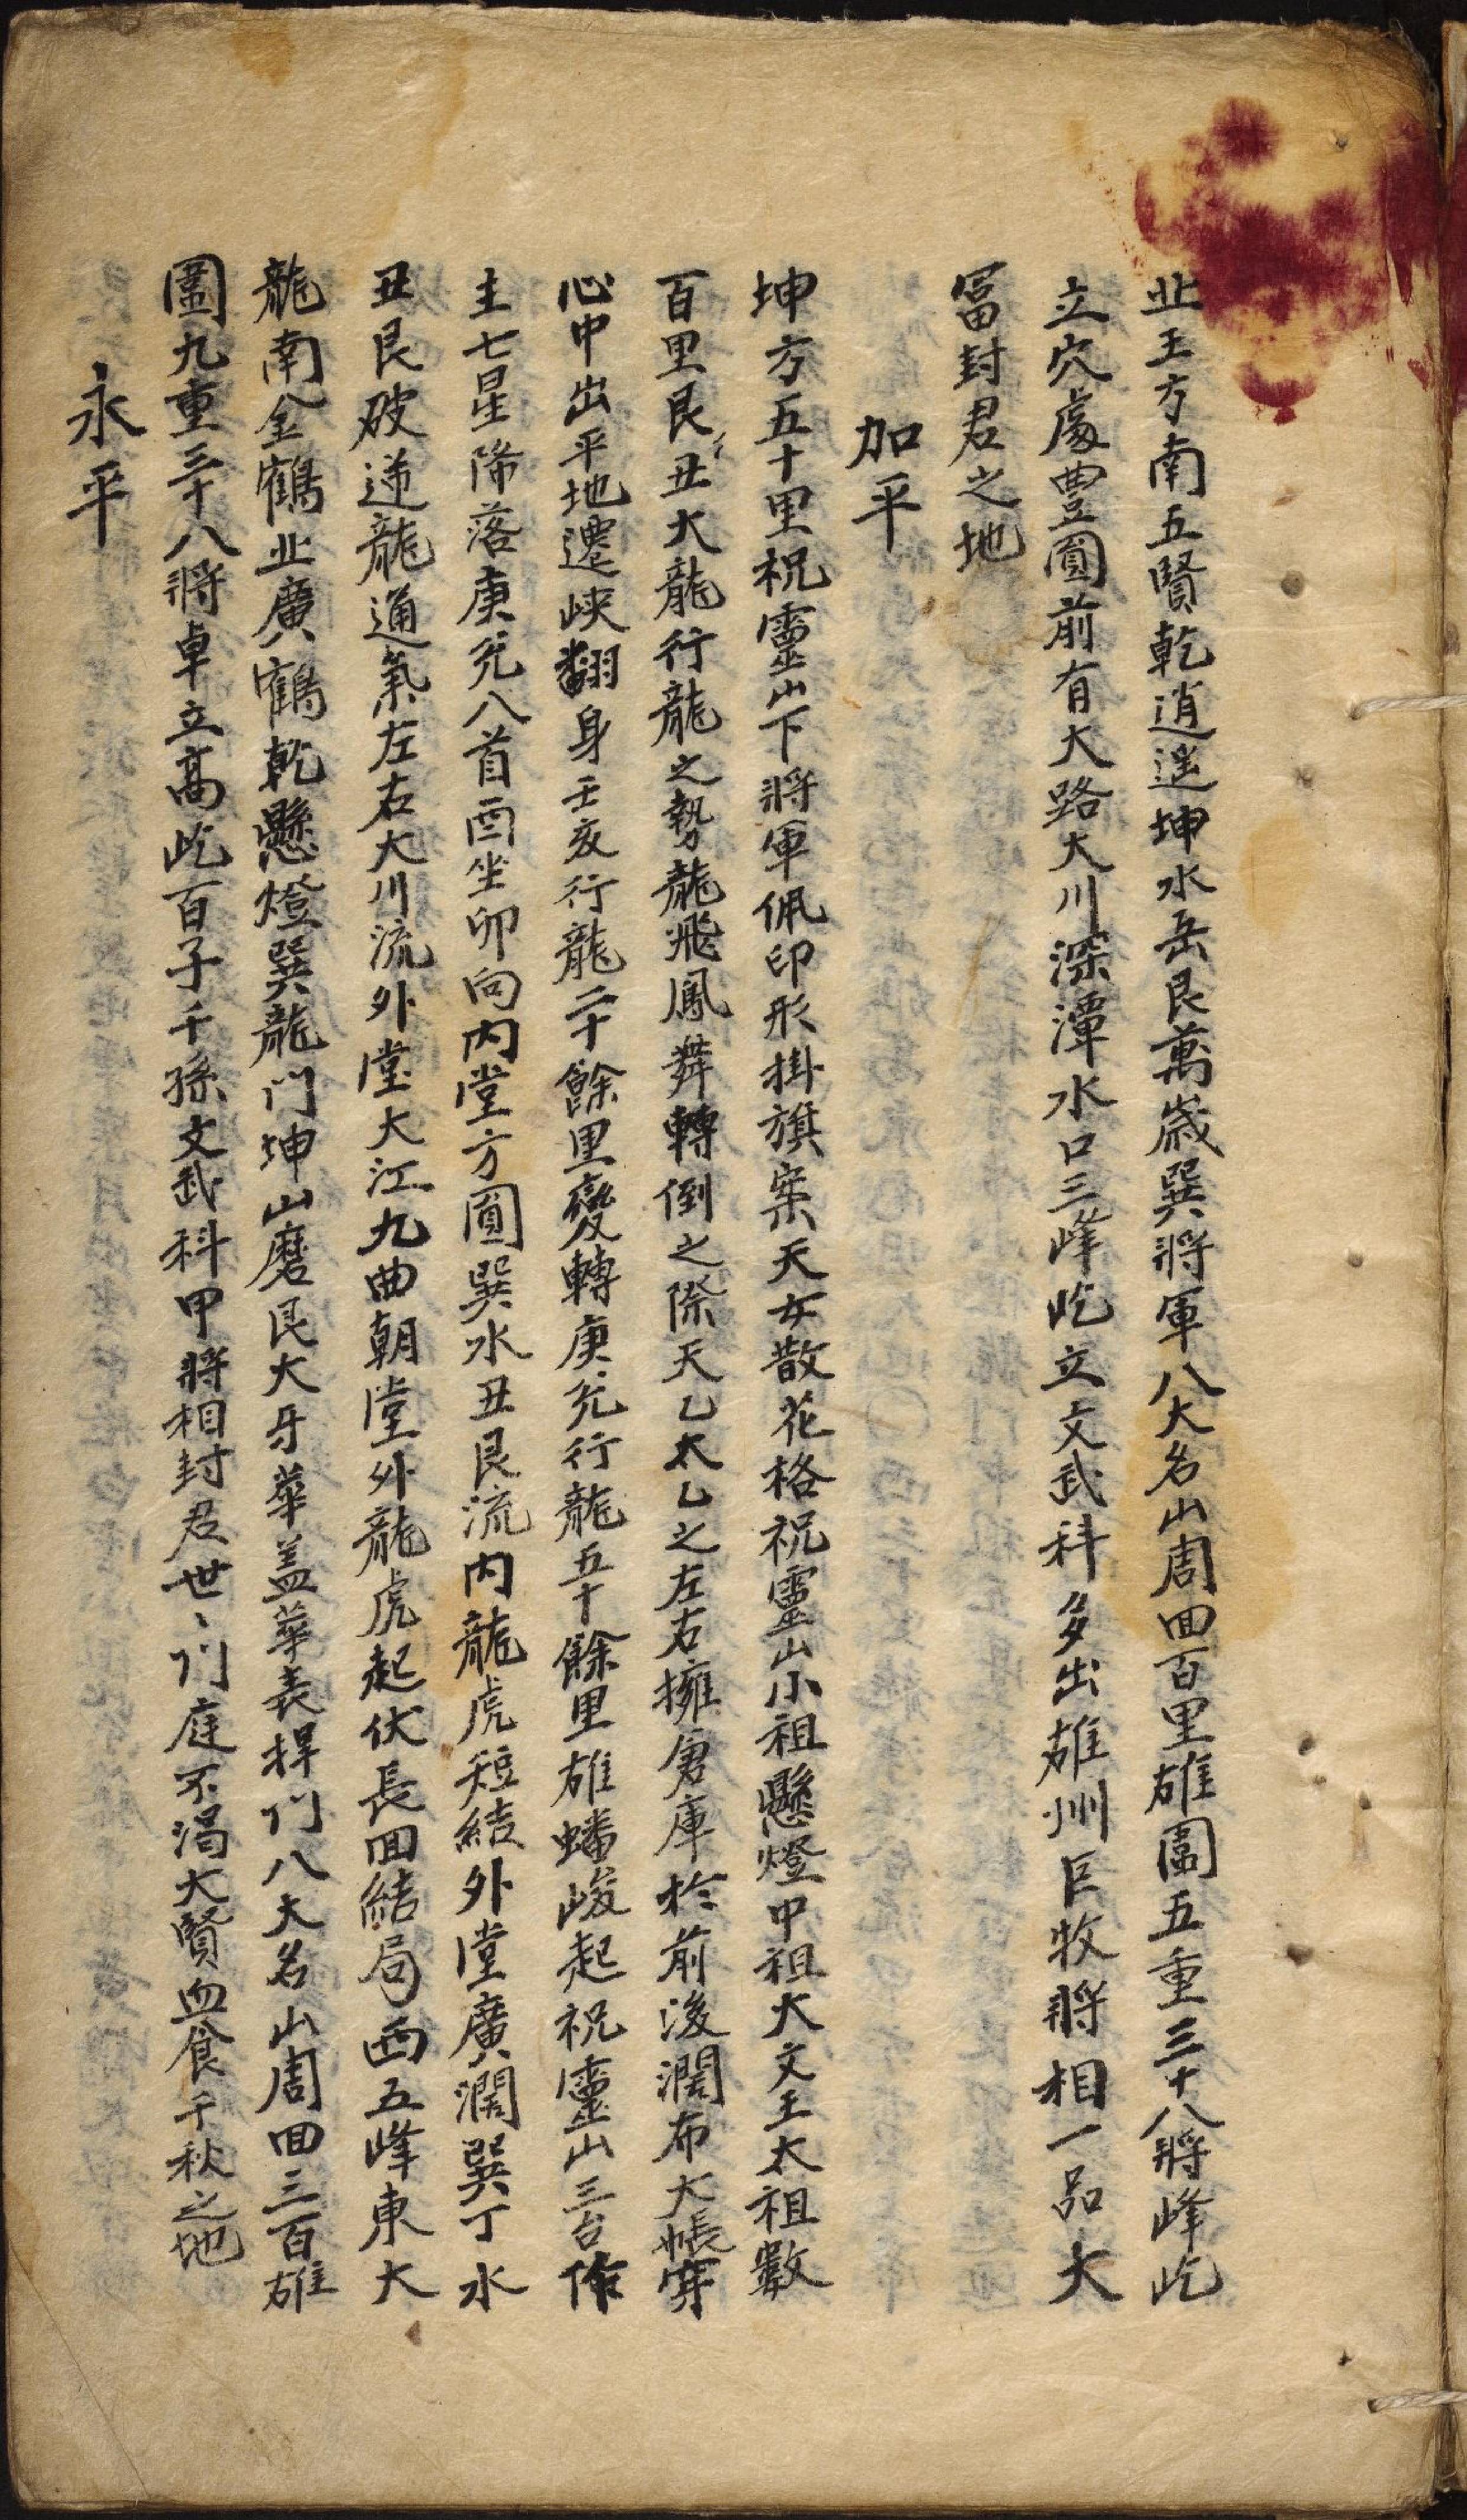 北王方南五賢乾逍遥坤水岳艮萬嵗巽將軍八大名山周回百里雄圍五重三十八將峰屹
立穴處豊圓前有大路大川深潭水口三峰屹立文武科多出雄州巨牧將相一品大
冨封君之地
加平
坤方五十里祝靈山下將軍佩印形掛旗案天女散花格祝靈山小祖懸燈中祖大文王太祖數
百里艮丑大龍行龍之勢龍飛鳳舞轉倒之際天乙太乙之左右擁倉庫於前後濶布大帳穿
心中出平地遷峽翻身壬亥行龍二十餘里變轉庚兊行龍五十餘里雄蟠峻起祝靈山三台作
主七星降落庚兊八首酉坐卯向内堂方圓巽水丑艮流内龍虎短結外堂廣濶巽丁水
丑艮破逆龍通氣左右大川流外堂大江九曲朝堂外龍虎起伏長回結局西五峰東大
龍南金鶴北廣鶴乾懸燈巽龍门坤山磨艮大牙華盖華表捍门八大名山周回三百雄
圍九重三十八將卓立高屹百子千孫文武科甲將相封君世〻门庭不渴大賢血食千秋之地
永平